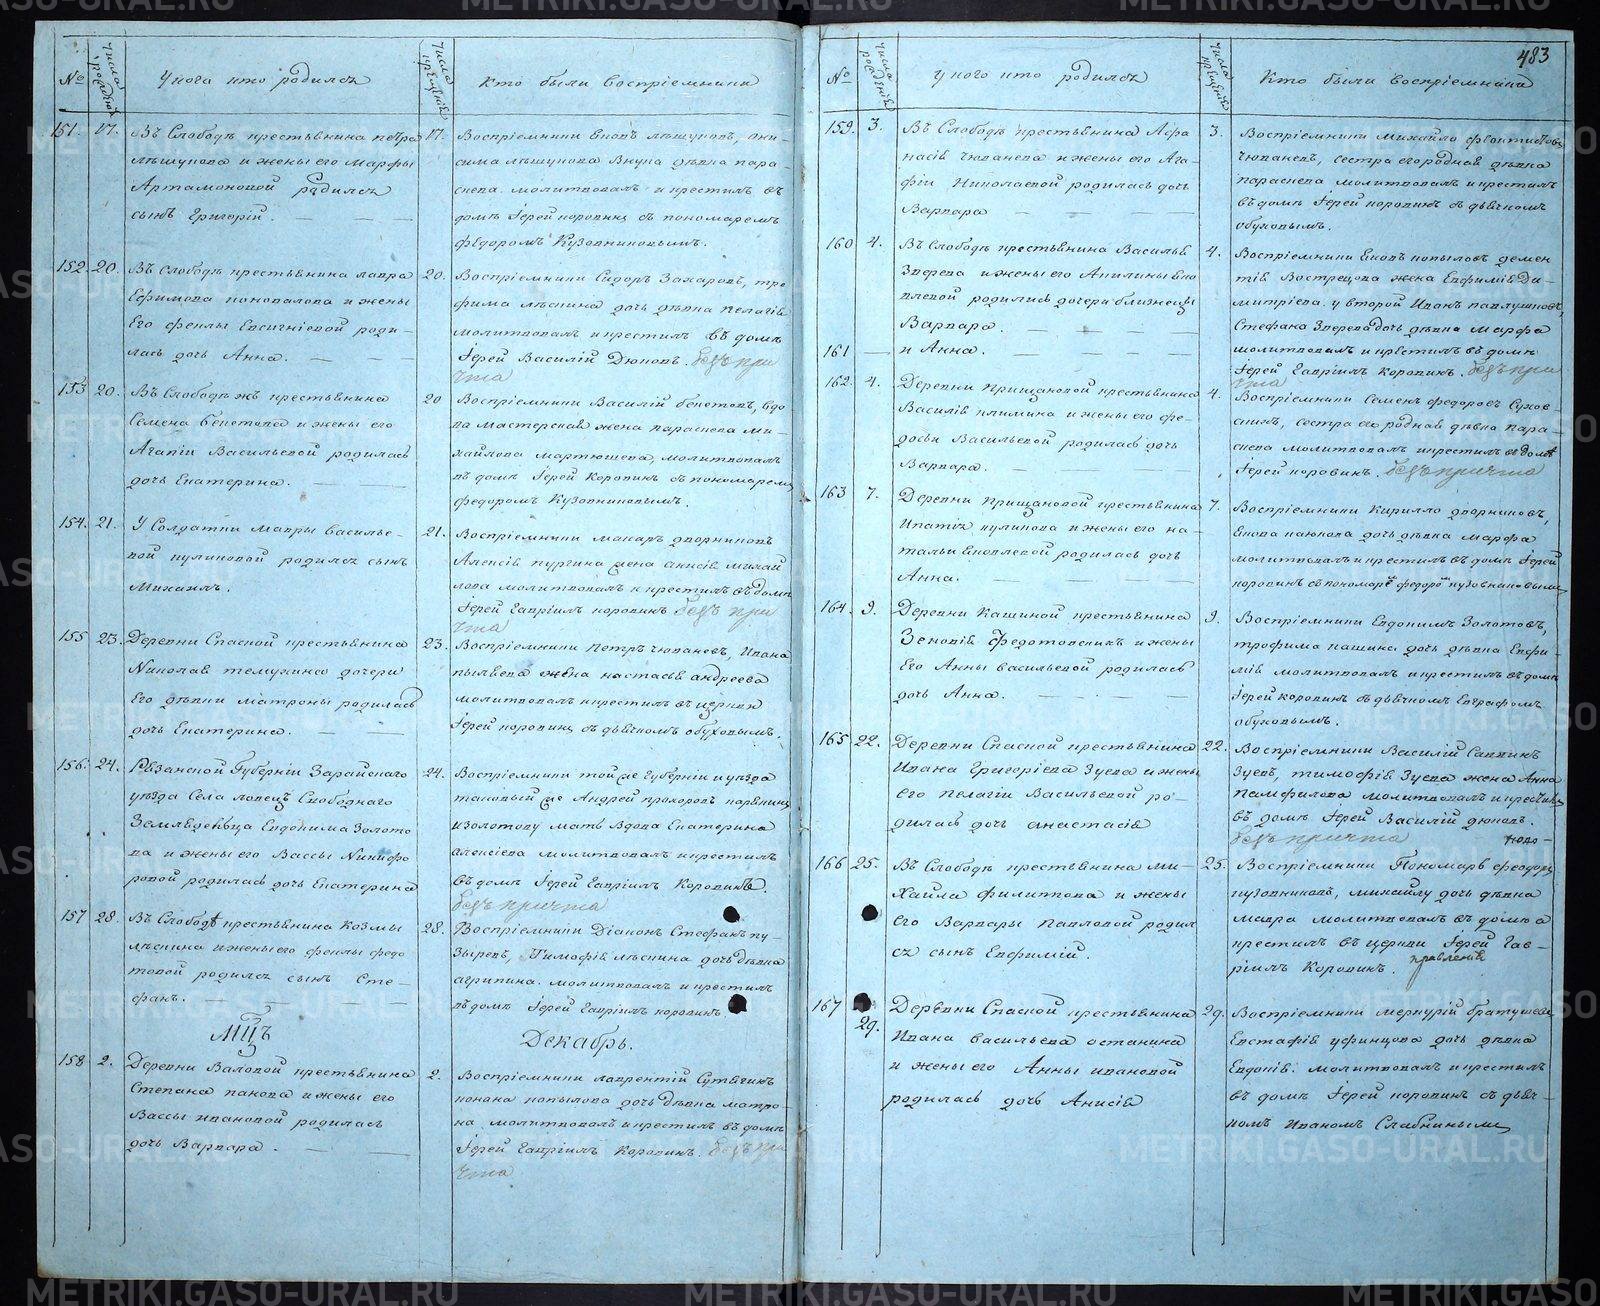 №
числа рожденія
У кого кто родился
числа крещенія
Кто были воспріемники
151. 17. Въ Слободѣ крестьянина петра
лѣшукова и жены его Марфы
Артамоновой родился
сынъ Григорій.
17. Воспріемники Яковъ лѣшуковъ, они-
сима лѣшукова внука дѣвка пара-
скева. молитвовалъ и крестилъ въ
домѣ Іерей коровинъ съ пономаремъ
федоромъ Кузовниковымъ.
152. 20. Въ слободѣ крестьянина лавра
Ефимова коновалова и жены
Его феклы Евсигніевой роди-
лась дочь Анна.
20. Воспріемники Сидоръ Захаровъ, тро-
фима лѣскина дочь дѣвка пелагія
молитвовалъ и крестилъ въ домѣ
Іерей Василій Дюковъ. безъ при
чта
153 20. Въ Слободѣ жъ крестьянина
Семена бекетова и жены его
Агапіи Васильевой родилась
дочь Екатерина.
20 Воспріемники Василій бекетовъ, вдо-
ва мастерская жена параскева Ми-
хайлова мартюшева, молитвовалъ
въ домѣ Іерей Коровинъ съ пономаремъ
федоромъ Кузовниковымъ.
154. 21. У Солдатки мавры василье-
вой куликовой родился сынъ
Михаилъ.
21. Воспріемники макаръ дворниковъ
Алексія пургина жена анисія михай
лова молитвовалъ и крестилъ въ домѣ
Іерей Гавріилъ коровинъ безъ при
чта
155 23. Деревни Спаской крестьянина
Николая темухина дочери
Его дѣвки матроны родилась
дочь Екатерина.
23. Воспріемники петръ чюваневъ, Ивана
пылаева жена настасья андреева
молитвовалъ и крестилъ въ церкви
Іерей коровинъ съ дьячкомъ обуховымъ.
156. 24. Рязанской Губерніи Зарайскаго
уѣзда Села ловецъ Свободнаго
Земледѣльца Евдокима Золото
ва и жены его Вассы Никифо
ровой родилась дочь Екатерина
24. Воспріемники той же губерніи и уѣзда
таковый же Андрей прохоровъ
и золотову мать вдова Екатерина
алексіева молитвовалъ и крестилъ
въ домѣ Іерей Гавріилъ Коровинъ.
безъ причта
157 28. Въ Слободѣ крестьянина Козмы
лѣскина и жены его феклы федо
товой родился сынъ Сте-
фанъ.
28. Воспріемники Діаконъ Стефанъ пу-
зыревъ, Тимофія лѣскина дочь дѣвка
агрипина. молитвовалъ и крестилъ
въ домѣ Іерей Гавріилъ коровинъ.
МЦЪ
Декабрь.
158 2. Деревни Валовой крестьянина
Степана панова и жены его
Вассы ивановой родилась
дочь Варвара.
2. Воспріемники лаврентій Сутягинъ
конона копылова дочь дѣвка матро-
на молитвовалъ и крестилъ въ домѣ
Іерей Гавріилъ Коровинъ. безъ при
чта
483
№
числа рожденія
у кого кто родился
числа крещенія
Кто были воспріемники
159. 3. Въ Слободѣ крестьянина Афа
насія чюванева и жены его Ага-
фіи Николаевой родилась дочь
Варвара
3. Воспріемники михайло феоктистовъ
чюваневъ, сестра его родная дѣвка
параскева молитвовалъ и крестилъ
въ домѣ Іерей коровинъ съ дьячкомъ
обуховымъ.
160 4. Въ Слободѣ крестьянина Василья
Зверева и жены его Акилины Яко
влевой родились дочери близнецы
Варвара.
161 — и Анна.
4. Воспріемники Яковъ копыловъ демен
тія Вострецова жена Евфимія Ди-
митріева. у второй Иванъ павлушковъ,
Стефана Зверева дочь дѣвка марфа
молитвовалъ и крестилъ въ домѣ
Іерей Гавріилъ Коровинъ. безъ при
чта
162. 4. Деревни прищановой крестьянина
Василія климина и жены его фе-
досьи Васильевой родилась дочь
Варвара.
4. Воспріемники Семенъ федоровъ
сестра его родная дѣвка пара-
скева молитвовалъ и крестилъ въ домѣ
Іерей коровинъ. безъ причта
163 7. Деревни прищановой крестьянина
Ипатія куликова и жены его на-
тальи Яковлевой родилась дочь
Анна.
7. Воспріемники Кирилло дворниковъ,
Якова паюкова дочь дѣвка марфа
молитвовалъ и крестилъ въ домѣ Іерей
коровинъ съ пономарё федоро кузовниковымъ
164. 9. Деревни Кашиной крестьянина
Зеновія Федотовскихъ и жены
Его Анны васильевой родилась
дочь Анна.
9. Воспріемники Евдокимъ Золотовъ,
трофима кашина дочь дѣвка Евфи-
мія молитвовалъ и крестилъ въ домѣ
Іерей коровинъ съ дьячкомъ Евграфомъ
обуховымъ.
165 22. Деревни Спаской крестьянина
Ивана Григорьева Зуева и жены
Его пелагіи Васильевой ро-
дилась дочь анастасія
22. Воспріемники Василій Саввинъ
Зуевъ, тимофія Зуева жена Анна
памфилова молитвовалъ и крестилъ
въ домѣ Іерей Василій дюковъ.
безъ причта
166 25. Въ Слободѣ крестьянина ми-
хайла филиппова и жены
Его Варвары павловой родил
ся сынъ Евфимій.
25. Воспріемники Пономарь феодоръ
кузовниковъ, михайлу дочь дѣвка
мавра молитвовалъ въ домѣ а
крестилъ въ церкви Іерей Гав-
ріилъ Коровинъ.
167 29. Деревни Спаской крестьянина
Ивана васильева останина
и жены его Анны ивановой
родилась дочь Анисія
29. Воспріемники меркурій братушевъ
Евстафія уфинцова дочь дѣвка
Евдокія. молитвовалъ и крестилъ
въ домѣ Іерей коровинъ съ дьяч-
комъ Иваномъ Слабнинымъ
METRIKI.GASO-URAL.RU